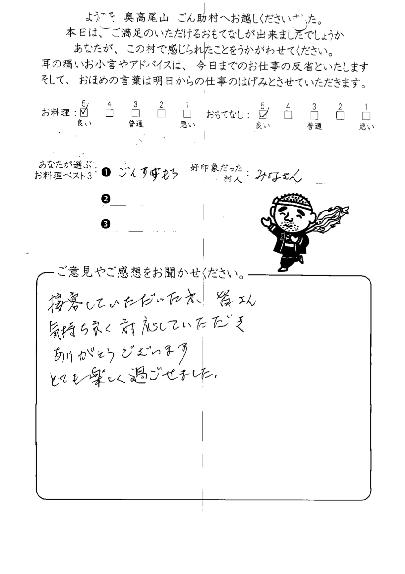 ようこそ 奥高尾山 ごん助村へお越しくださいました。
本日は、ご満足のいただけるおもてなしが出来ましたでしょうか
あなたが、この村で感じられたことをうかがわせてください。
耳の痛いお小言やアドバイスに、今日までのお仕事の反省といたします
そして、おほめの言葉は明日からの仕事のはげみとさせていただきます。
お料理: 5 4 3 2 1 おもてなし: 5 4 3 2 1
良い 普通 悪い 良い 普通 悪い
あなたが選ぶ
お料理ベスト3 ❶ ごんすけもち 好印象だった村人: みなさん
❷
❸
ご意見やご感想をお聞かせください。
接客していただいた方、皆さん
気持ち良く対応していただき
ありがとうございます
とても楽しく過ごせました。